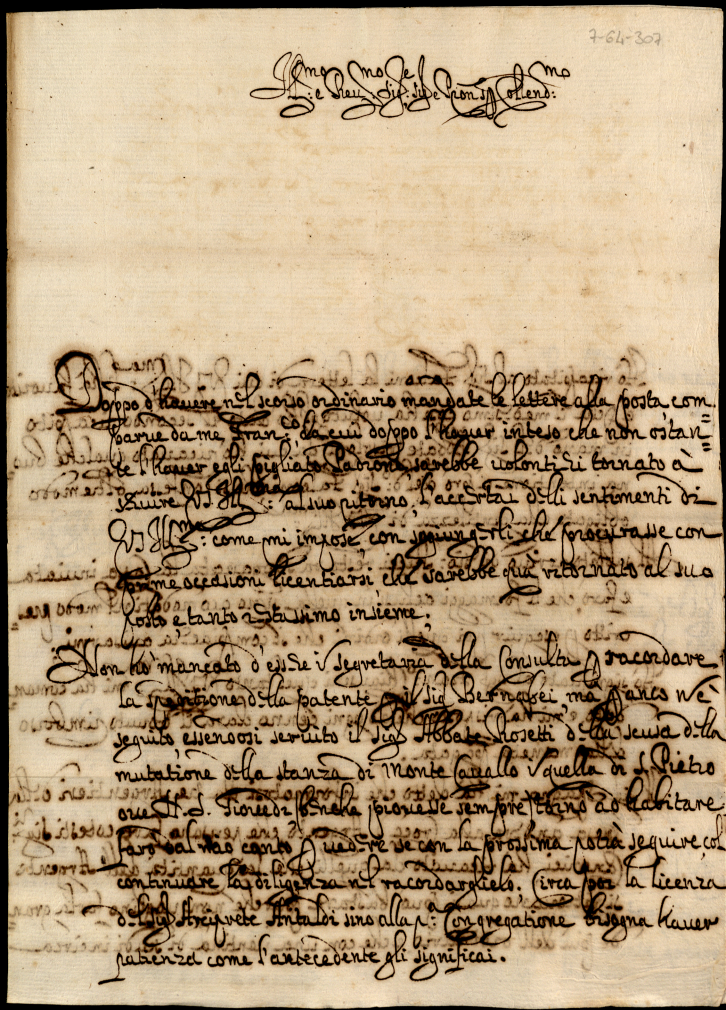 7-64-307
Ill:mo e Reu:mo Sig:re Sig:re e Pron Collend:mo
Doppo d'hauere nel scorso ordinario mandate le lettere alla posta com=
parue da me Fran:co da cui doppo l'hauer inteso che non ostan=
te l'hauer egli pigliato Padrone sarebbe uolontieri tornato à
seruire VS Ill:ma al suo ritorno, l'accertai delli sentimenti di
VS Ill:ma: come mi impose, con soggiungerli che procurasse con
prime occasioni licentiarsi, che sarebbe quà ritornato al suo
posto e tanto restassimo insieme;
Non ho mancato d'essere in segretaria della Consulta p racordare
la speditione della patente p il Sig Bernabei, mà p anco n'è
seguito, essendosi seruito il Sig Abbate Rosetti della scusa della
mutatione della stanza di Monte Cauallo in quella di S. Pietro
oue N. S. Giouedi benche piouesse sempre tornò ad habitare
farò dal mio canto p uedere se con la prossima potrà seguire col
continuare la diligenza nel racordarglielo. Circa poi la licenza
del Sig Areiprete Antaldi sino alla p:a Congregatione bisogna hauer
patienza come l'antecedente gli significai.